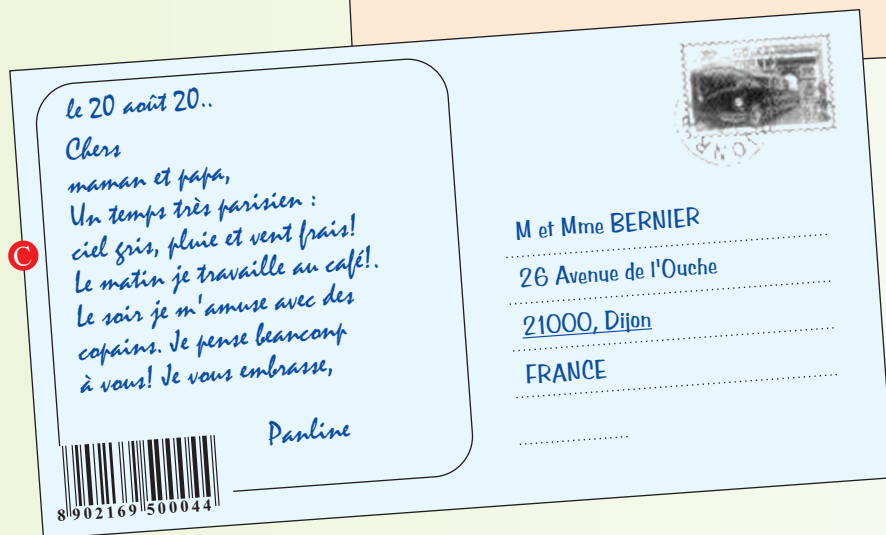 C
le 20 août 20..
Chers
maman et papa,
Un temps très parisien :
ciel gris, pluie et vent frais!
Le matin je travaille au café!.
Le soir je m'amuse avec des
copains. Je pense beaucoup
à vous! Je vous embrasse,
Pauline
8 902169 500044
M et Mme BERNIER
26 Avenue de l'Ouche
21000, Dijon
FRANCE